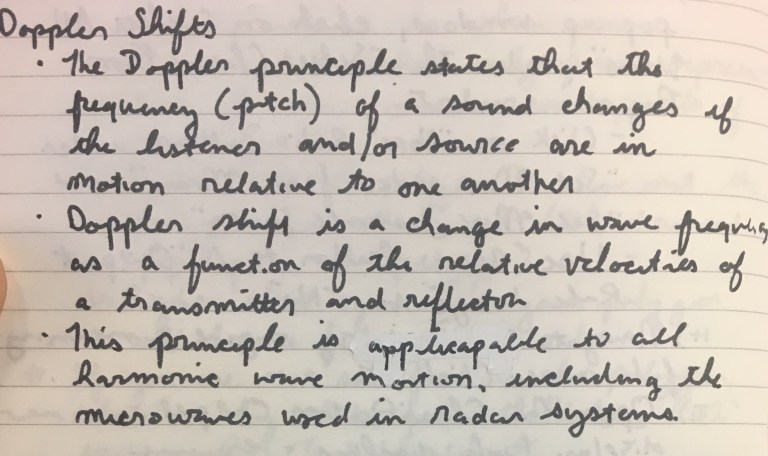 Doppler Shifts
· The Doppler principle states that the
frequency (pitch) of a sound changes if
the listener and/or source are in
motion relative to one another
· Doppler shift is a change in wave frequency
as a function of the relative velocities of
a transmitter and reflector
· This principle is applicapable to all
harmonic wave motion, including the
microwaves used in radar systems.